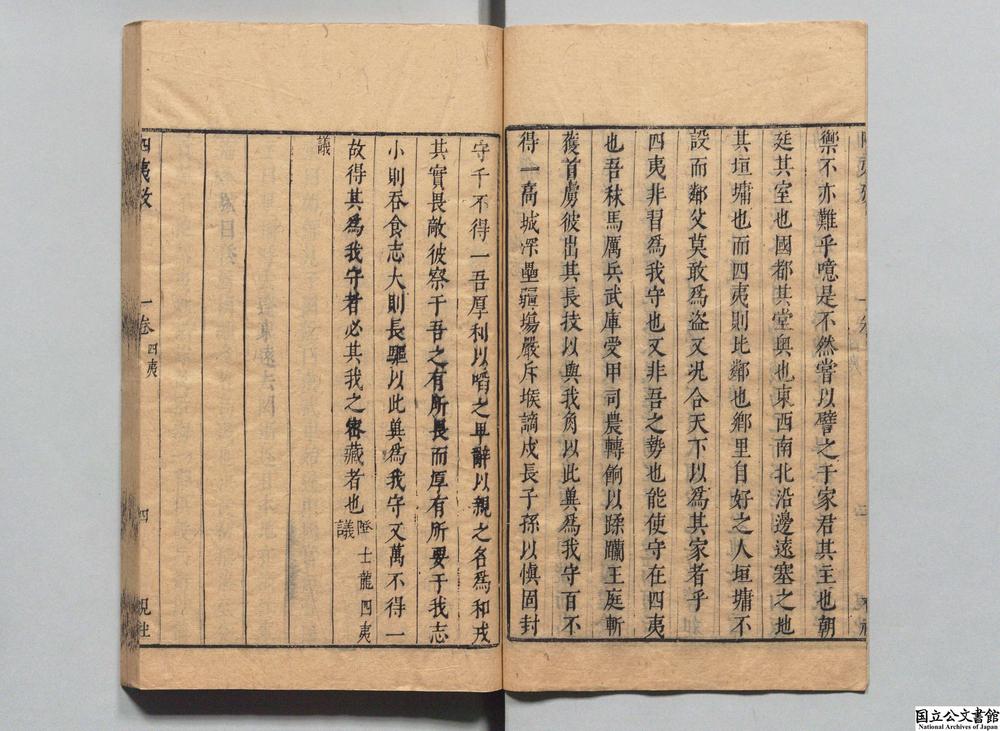 禦不亦難乎噫是不然嘗以譬之于家君其主也朝
廷其室也國都其堂奧也東西南北沿邊遠塞之地
其垣墉也而四夷則比鄰也鄉里自好之人垣墉不
設而鄰父莫敢爲盗又况合天下以爲其家者乎
四夷非習爲我守也又非吾之勢也能使守在四夷
也吾秣馬厲兵武庫受甲司農轉餉以蹂躪王庭斬
獲首虜彼出其長技以與我角以此兾爲我守百不
得一高城深壘疆埸嚴斥堠謫戍長子孫以愼固封
守千不得一吾厚利以啗之卑辭以親之名爲和戎
其實畏敵彼察于吾之有所畏而厚有所要于我志
小則吞食志大則長驅以此兾爲我守又萬不得一
故得其爲我守者必其我之密藏者也 士龍四夷
議
議
四夷攷
一卷 四夷
四
国立公文書館
National Archives of Japan